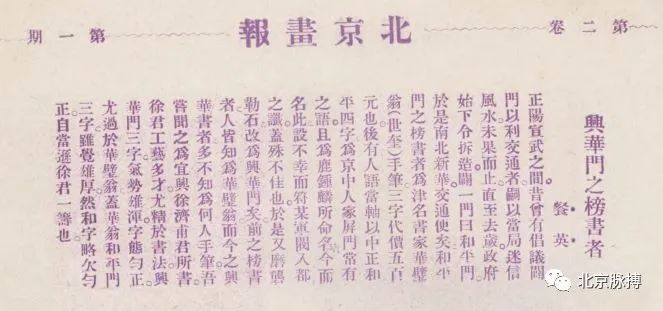 第二卷
北京畫報
第一期
興華門之榜書者
餐英
正陽宣武之間昔曾有倡議闢
門以利交通者嗣以當局迷信
風水未果而止直至去歲政府
始下令拆造闢一門曰和平門
於是南北新華交通便矣和平
門之榜書者爲津名書家華璧
翁(世奎)手筆三字代價五百
元也後有人語當軸以中正和
平四字爲京中人家屏門常有
之語且爲鹿鍾麟所命名今而
名此設不幸而符某軍閥入都
之讖蓋殊不佳也於是又磨礱
勒石改爲興華門矣前之榜書
者人皆知爲華璧翁而今之興
華書者多不知爲何人手筆吾
嘗聞之爲宜興徐濟甫君所書
徐君工藝多才尤精於書法興
華門三字氣勢雄渾字態勻正
尤過於華璧翁蓋華翁和平門
三字雖覺雄厚然和字略欠勻
正自當遜徐君一籌也
北京脉搏